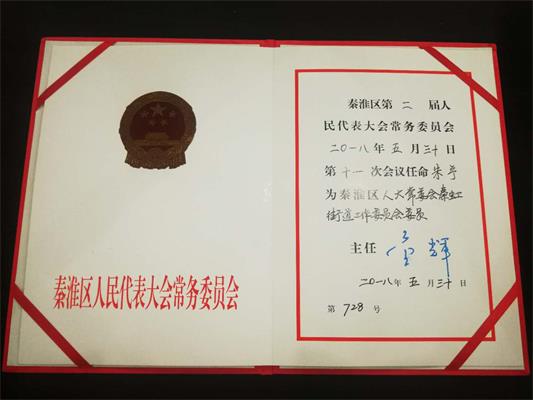 秦淮区人民代表大会常务委员会
秦淮区第二届人
民代表大会常务委员会
二〇一八年五月三十日
第十一次会议任命朱亭
为秦淮区人大常委会秦虹
街道工作委员会委员
主任 金辉
二〇一八年五月三十日
第728号